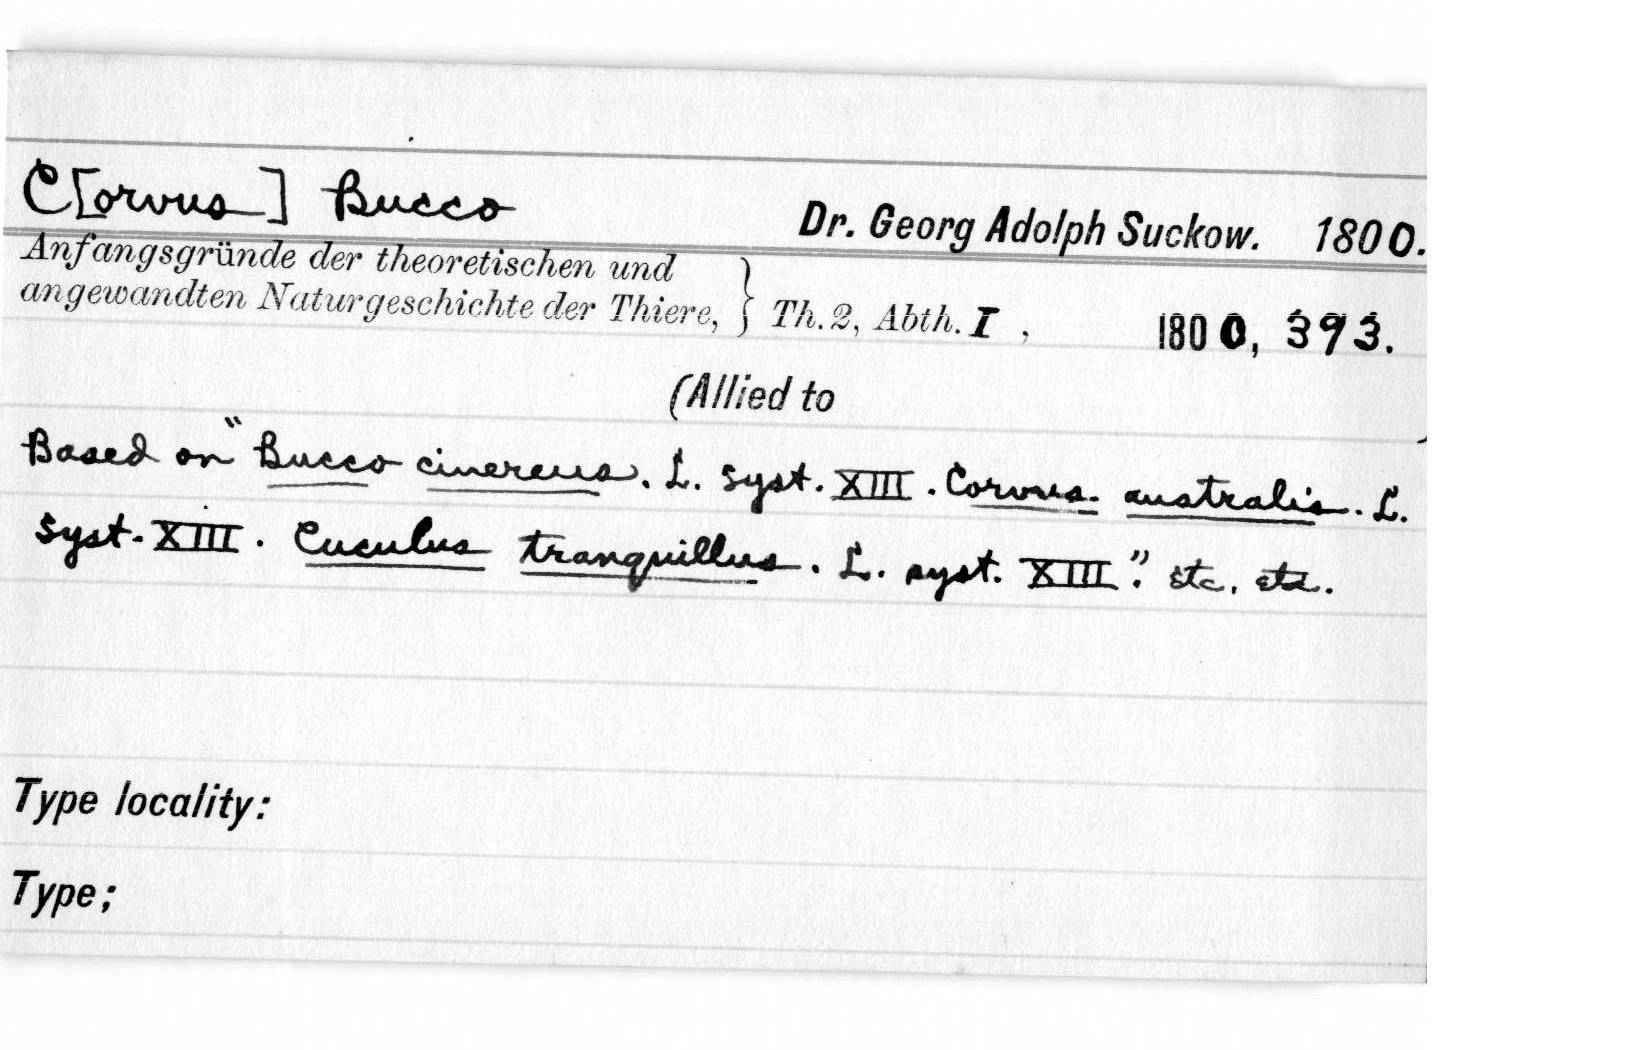 C[orvus] Bucco Dr. Georg Adolph Suckow. 1800.
Anfangsgründe der theoretischen und
angewandten Naturgeschichte der Thiere, } Th. 2, Abth. I, 1800, 393.
(Allied to )
Based on "Bucco cinereus. L. Syst. XIII. Corvus. australis. L.
Syst. XIII. Cuculus tranquillus. L. syst. XIII." etc. etc.
Type locality:
Type;